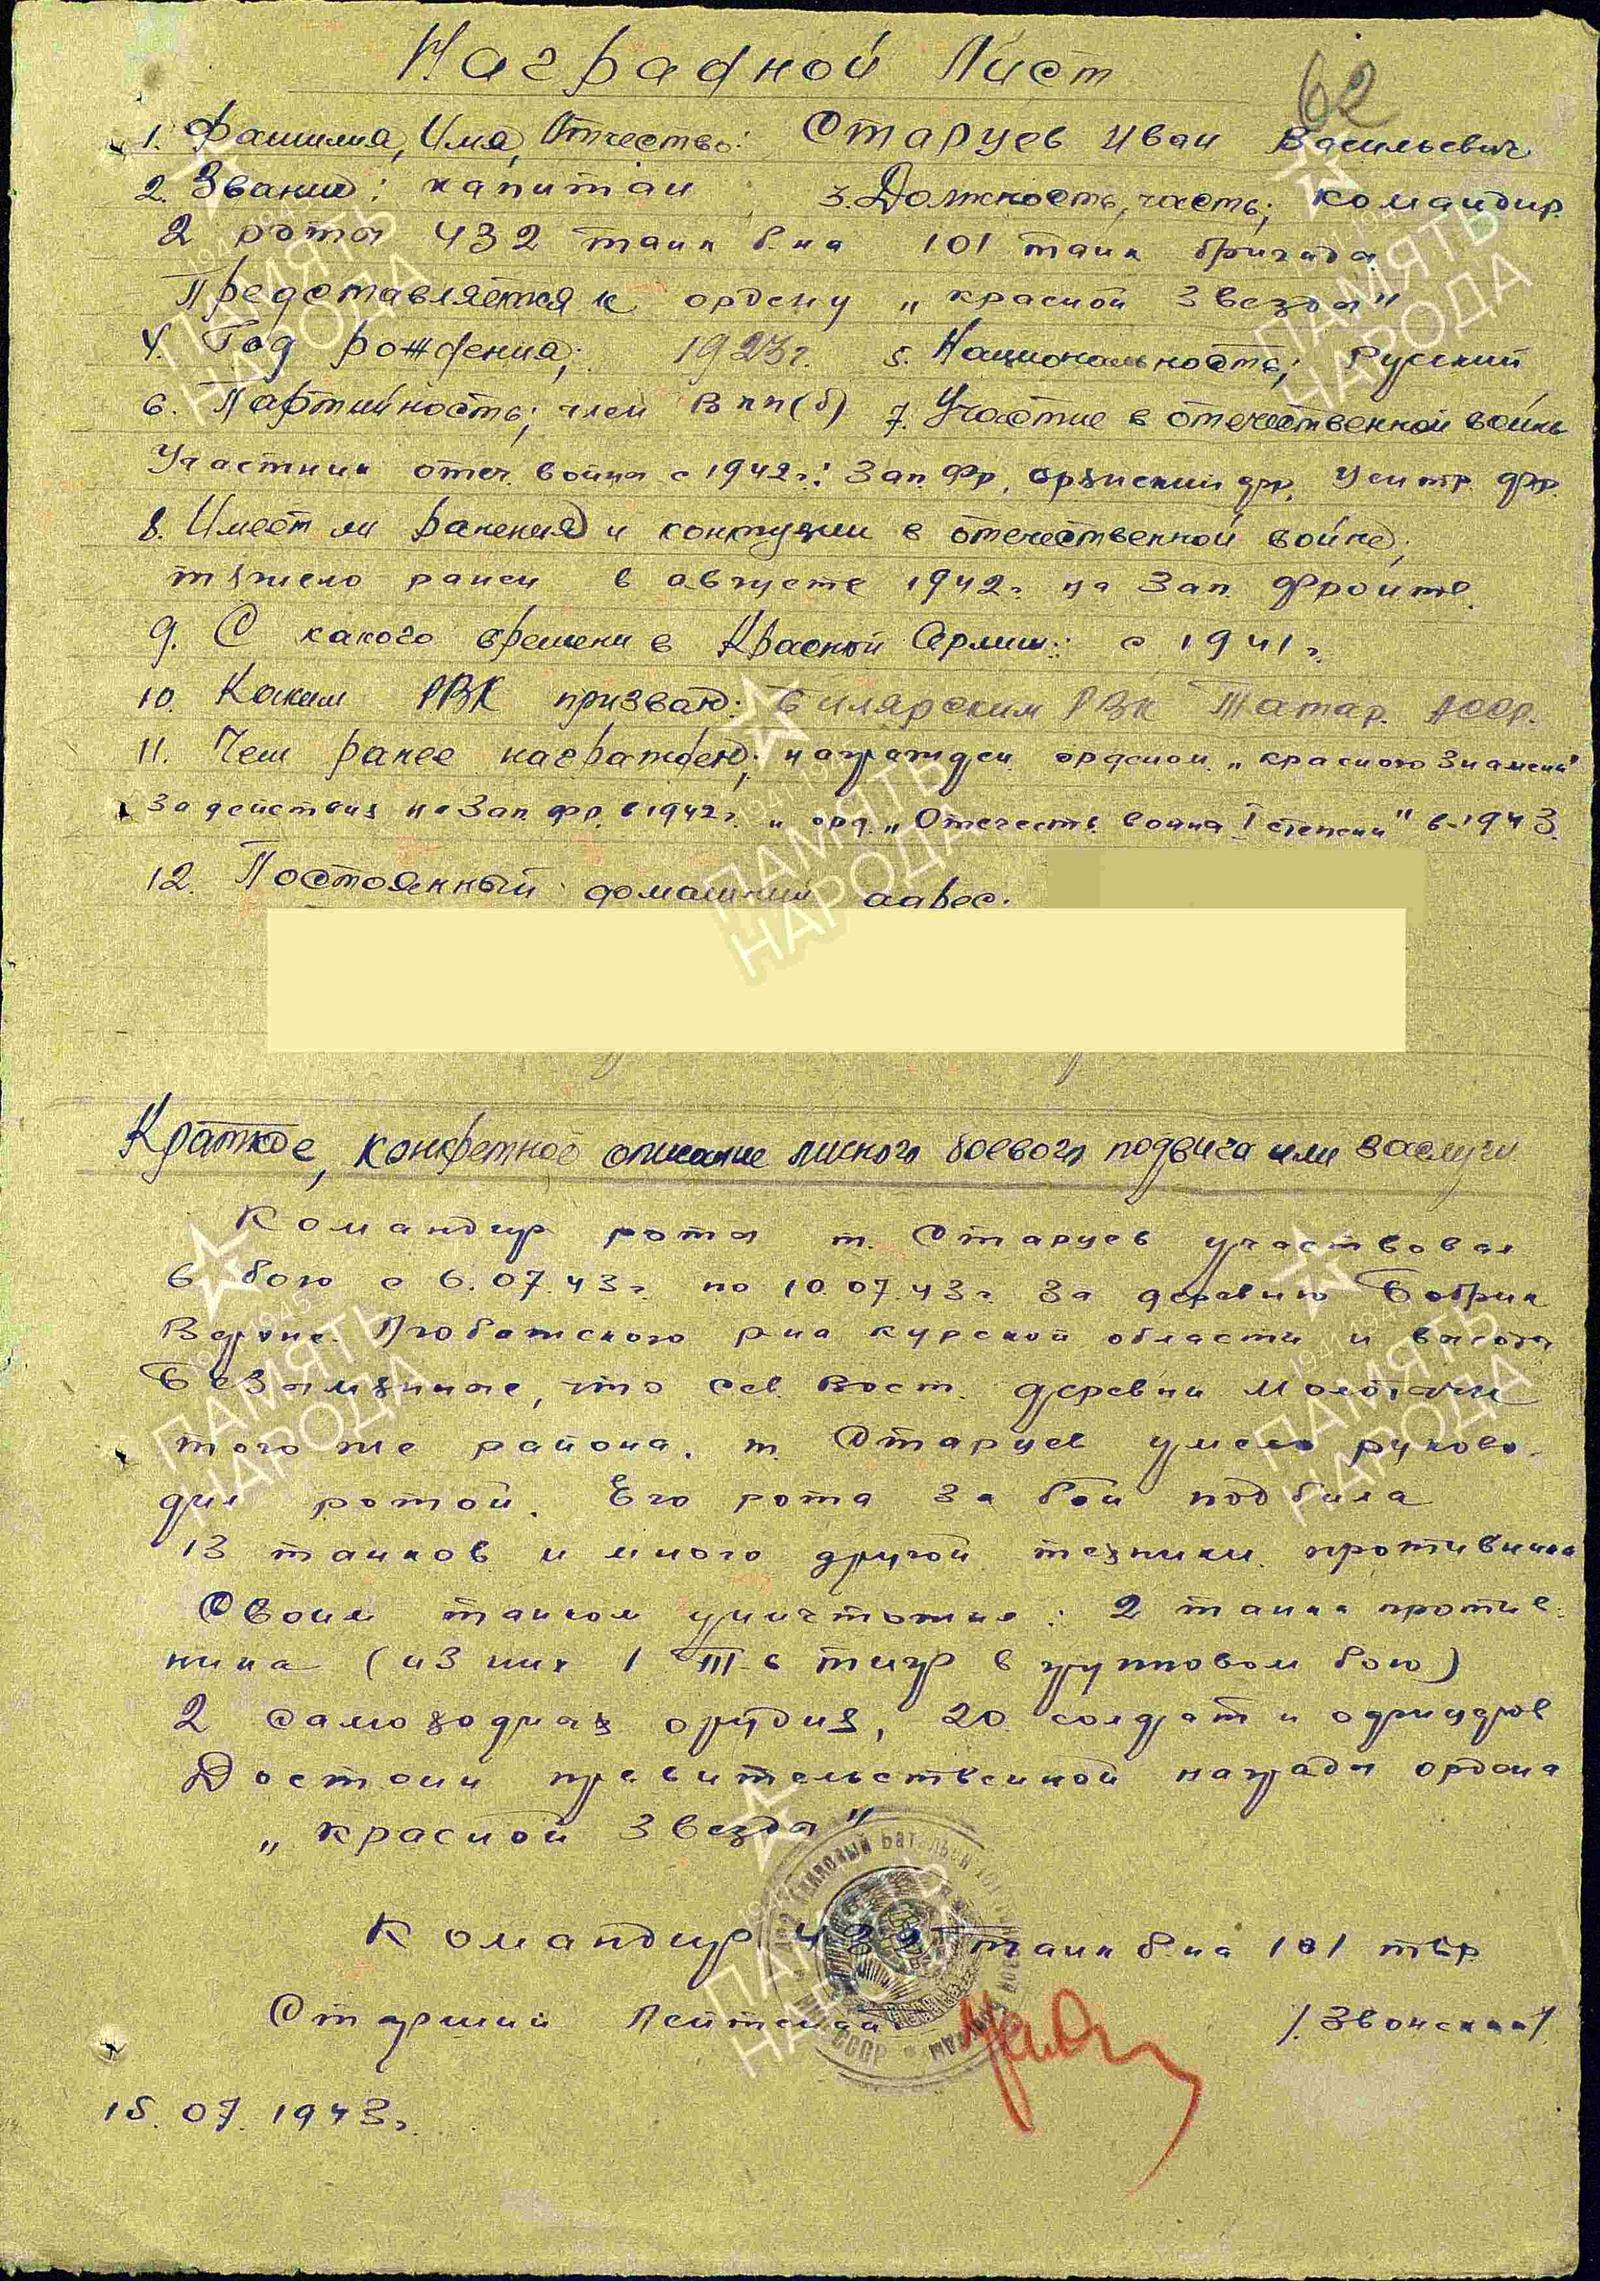 Наградной Лист
62
1. Фамилия, Имя, Отчество: Старуев Иван Васильевич
2. Звание: капитан 3. Должность, часть; командир
2 роты 432 танк б-на 101 танк бригада
Представляется к ордену „красной Звезды"
4. Год рождения; 1923 г. 5. Национальность; Русский
6. Партийность; член ВКП(б) 7. Участие в отечественной войне
Участник отеч. войны с 1942 г: Зап. Фр, Брянский фр, Центр. фр.
8. Имеет ли ранения и контузии в отечественной войне;
тяжело ранен в августе 1942 г. на Зап. фронте.
9. С какого времени в Красной Армии: с 1941 г.
10. Каким РВК призван: Билярским РВК Татар. АССР.
11. Чем ранее награжден; награжден орденом „красного Знамени"
За действия на Зап. фр. в 1942 г. и орд. „Отечеств. война I степени" в 1943
12. Постоянный домашний адрес.
Краткое, конкретное описание личного боевого подвига или заслуги
Командир роты т. Старуев участвовал
в бою с 6.07.43 г. по 10.07.43 г. За деревню Бобрик
р-на курской области и высоты
Безымянные, что Сев. Вост. деревни Молотычи
того же района. т. Старуев умело руково-
дил ротой. Его рота за бои подбила
13 танков и много другой техники противника
Своим танком уничтожил: 2 танка против-
ника (из них 1 Т-6 тигр в групповом бою)
2 самоходных орудия, 20 солдат и офицеров
Достоин правительственной награды ордена
„красной Звезды"
Командир 432 танк б-на 101 тбр
Старший Лейтенант
15.07.1943 г.
ПАМЯТЬ НАРОДА
1941-1945